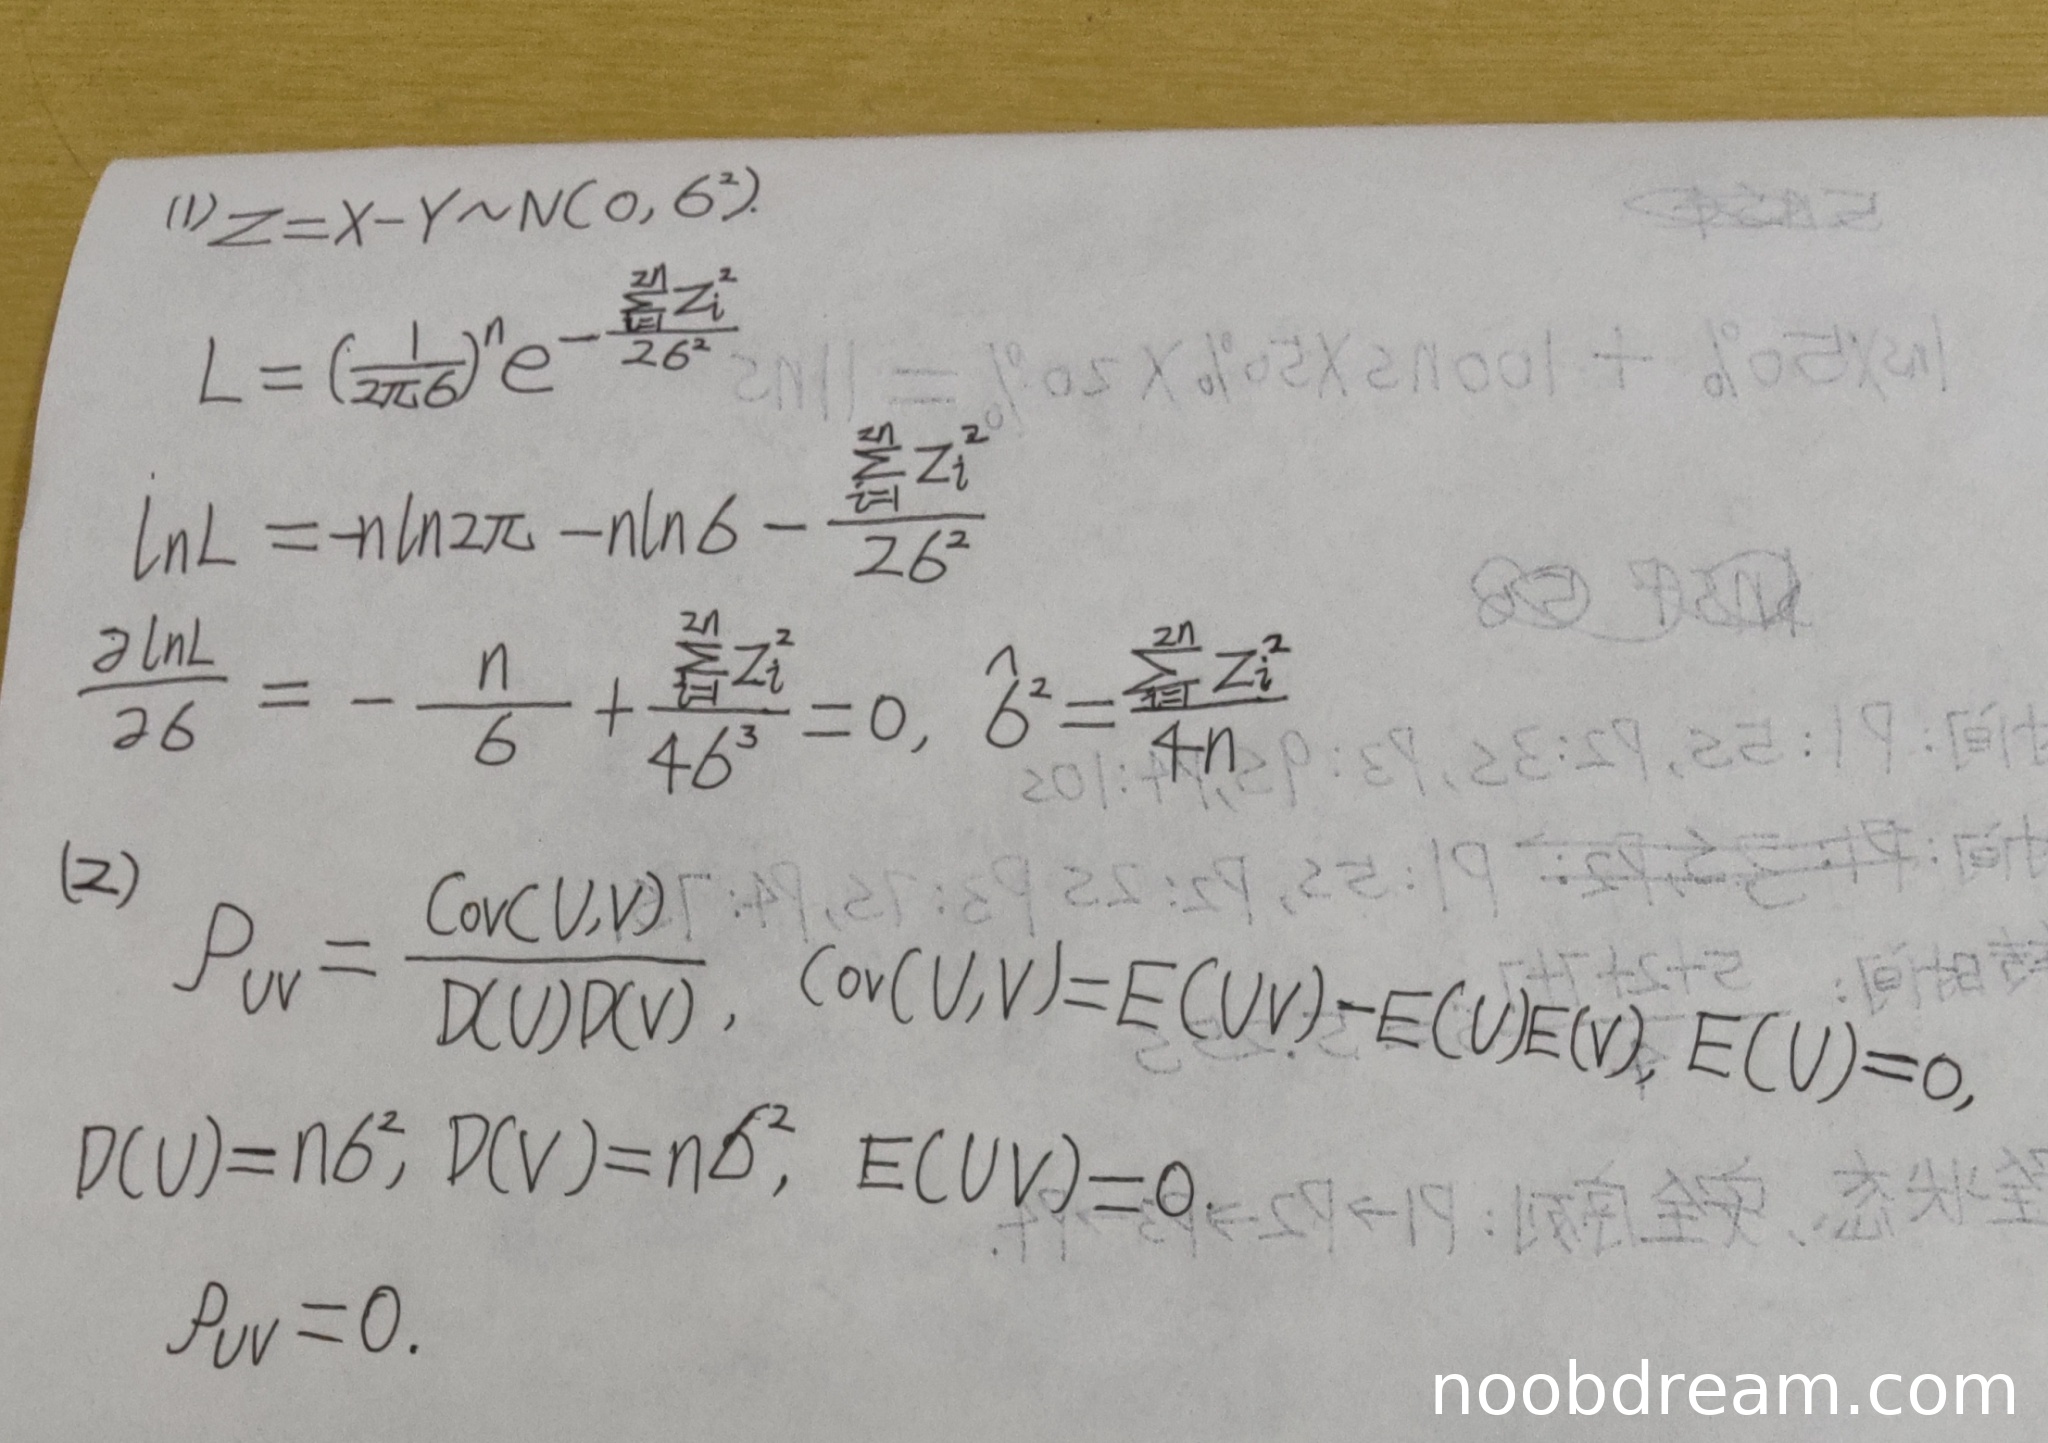 (1) Z=X-Y~N(0,б²).
L=(1/2πб)ⁿe^(-∑_{i=1}^{2n}Zi²/2б²)
lnL=-nln2π-nlnб-∑_{i=1}^{2n}Zi²/2б²
∂lnL/∂б=-n/б+∑_{i=1}^{2n}Zi²/4б³=0, б̂²=∑_{i=1}^{2n}Zi²/4n
(2) ρ_UV=Cov(U,V)/D(U)D(V), Cov(U,V)=E(UV)-E(U)E(V), E(U)=0,
D(U)=nб², D(V)=nб², E(UV)=0.
ρ_UV=0.
noobdream.com